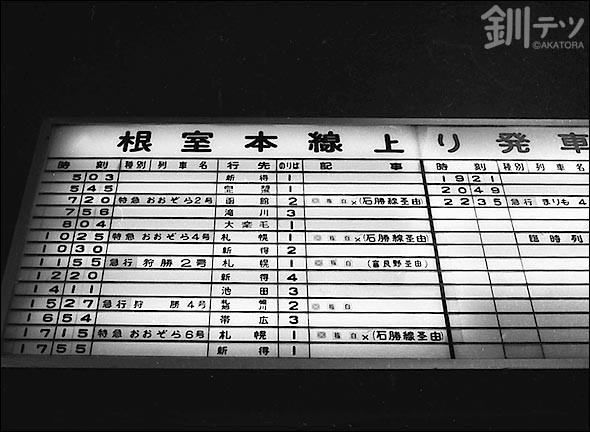 釧テツ
©AKATORA
根室本線上り発車
時刻 種別 列車名 行先 のりば 記事
503 新得 1
545 1
720 特急 おおぞら2号 函館 2 指自×(石勝線経由)
756 滝川 3
804 大楽毛 1
1025 特急 おおぞら4号 札幌 1 指自×(石勝線経由)
1030 新得 2
1155 急行 狩勝2号 札幌 1 指自 (富良野経由)
1220 新得 4
1411 池田 3
1527 急行 狩勝4号 札幌 2 指自
1654 帯広 3
1715 特急 おおぞら6号 札幌 1 指自×(石勝線経由)
1755 新得 1
時刻 種別 列車名
1921
2049
2235 急行 まりも4
臨時列